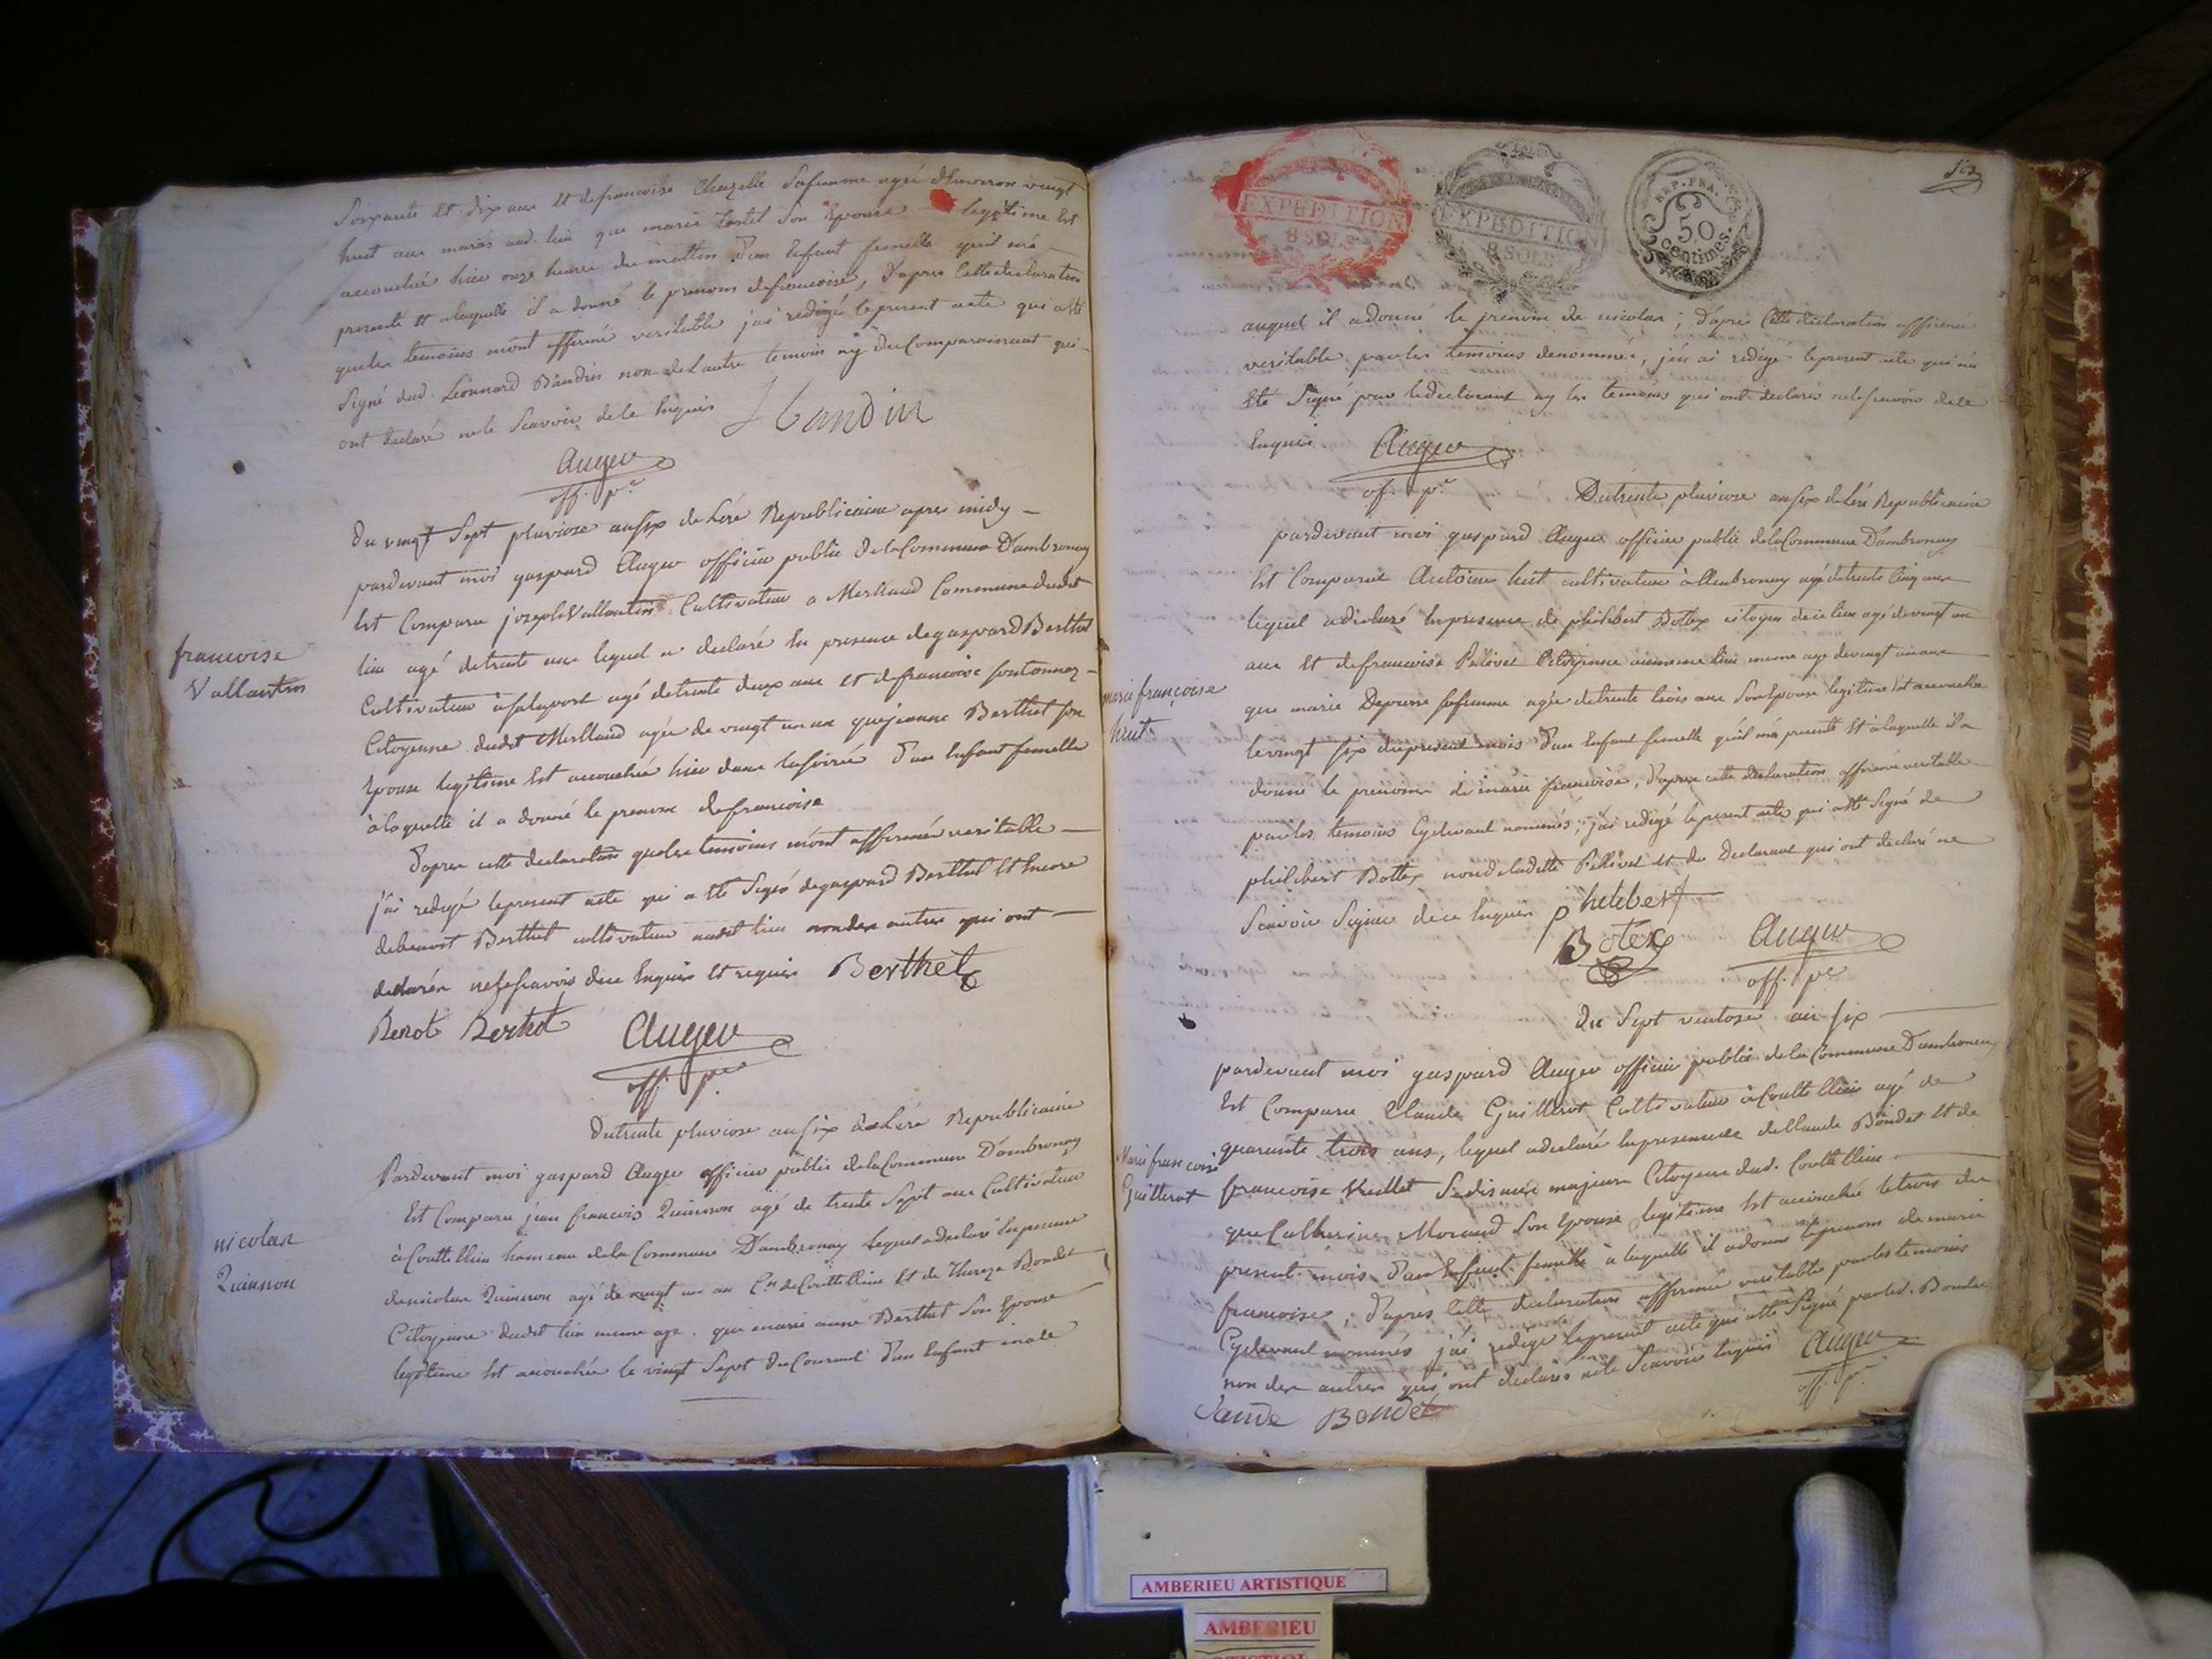 Soixante et dix ans et de francoise Chazelle Safemme agée d'Environ vingt
huit ans mariés aud. lieu que marie tostel Son Epouse legitime Est
accouchée hier onze heures du mattin d'un Enfant femelle quil ma
presenté et alaquelle il a donné le prenom de francoise, d'apres Cette declaration
que les temoins m'ont affirmé veritable j'ai redigé le present acte qui a été
Signé dud. Léonnard Bandin non de l'autre temoin ny du Comparaissant qui
ont declaré ne le Scavoir de ce Enquis Bandin
Auger
off. p.c
Du vingt Sept pluviose an six de L'ere Republicaine apres midy
pardevant moi gaspard Auger officier public de la Commune D'ambronay
Est Comparu joseph Vallantin Cultivateur a Merland Commune dudit
francoise
Vallantin
lieu agé de trente ans lequel a declaré En presence de gaspard Berthet
Cultivateur à Salaport agé de trente deux ans et de francoise fontannez
Citoyenne dudit Merland agée de vingt un ans que jeanne Berthet Son
Epouse legitime Est accouchée hier dans la soirée d'un Enfant femelle
à laquelle il a donné le prenom de francoise
d'apres cette declaration que les temoins m'ont affirmé veritable
j'ai redigé le present acte qui a été Signé de gaspard Berthet Et Encore
de benoit Berthet cultivateur audit lieu non des autres qui ont
declarés ne le Scavoir de ce Enquis et requis Berthet
Benot Berthet Auger
off. p.c
Du trente pluviose an six de L'ere Republicaine
Pardevant moi gaspard Auger officier public de la Commune D'ambronay
Est Comparu jean francois Quinson agé de trente Sept ans Cultivateur
nicolas
Quinson
à Couttelieu hameau de la Commune D'ambronay lequel a declaré En presence
de nicolas Quinson agé de vingt un an C.en de Couttelieu Et de Thereze Bondet
Citoyenne dudit lieu meme age, que marie anne Berthet Son Epouse
legitime Est accouchée le vingt Sept du Courant d'un Enfant male
Six
EXPEDITION
8 SOLS
EXPEDITION
8 SOLS
REP. FRA.
50
centimes.
auquel il a donné le prenom de nicolas ; d'apres Cette declaration affirmé
veritable par les temoins denommés, j'en ai redigé le present acte qui n'a
Eté Signé par le declarant ny les temoins qui ont declarés ne le scavoir de ce
Enquis. Auger
of. p.c
Du trente pluviose an six de L'ere Republicaine
pardevant moi gaspard Auger officier public de la Commune D'ambronay
Est Comparut Antoine huit cultivateur à Ambronay agé de trente Cinq ans
lequel a declaré En presence de philibert Bottex citoyen de ce lieu agé de vingt un
ans Et de francoise Pellivet Citoyenne meme lieu meme age de vingt un ans
marie françoise
huit
que marie Dépierre Sa femme agée de trente trois ans Son Epouse legitime Est accouchée
le vingt six du present mois d'un Enfant femelle quil m'a presenté Et à laquelle il a
donné le prenom de marie francoise, d'apres cette declaration affirmé veritable
par les temoins Cydevant nommés, j'ai redigé le present acte qui a été Signé de
philibert Bottex non de ladette Pellivet Et du Declarant qui ont declaré ne
Scavoir Signer de ce Enquis phelibert
Botex Auger
off. p.c
Du Sept ventose an six
pardevant moi gaspard Auger officier public de la Commune D'ambronay
Est Comparu Claude Guillerot Cultivateur à Couttelieu agé de
Marie francoise
Guillerot
quarante trois ans, lequel a declaré En presence de Claude Bondet Et de
francoise majeurs Citoyens dud. Couttelieu
que Catherine Morand Son Epouse legitime Est accouchée le trois du
present mois d'un Enfant femelle à laquelle il a donné le prenom de marie
francoise, d'apres Cette declaration affirmé veritable par les temoins
Cydevant nommés j'ai redigé le present acte qui a été Signé par led. Bondet
non des autres qui ont declarés ne le Scavoir Enquis Auger
off. p.c
Claude Bondet
AMBERIEU ARTISTIQUE
AMBERIEU
ARTISTIQUE